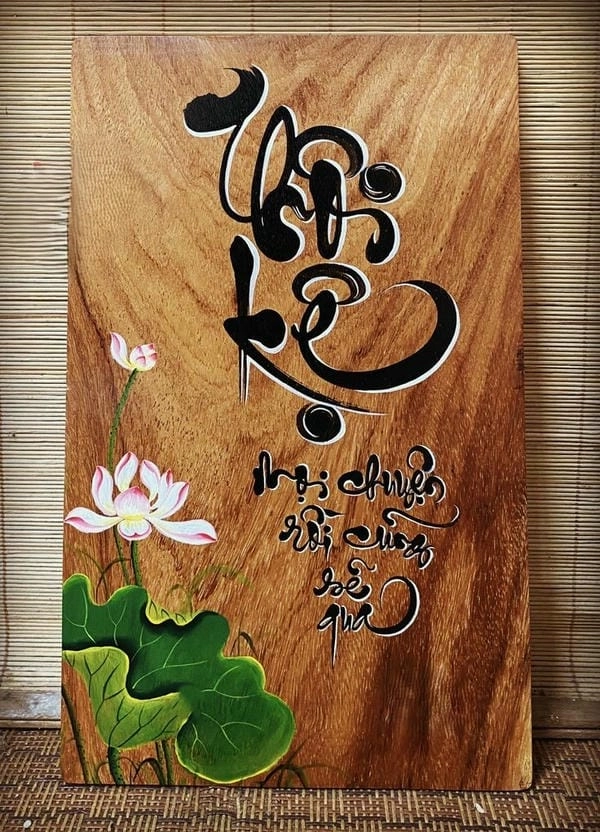 Thôi
kệ
Mọi chuyện
rồi cũng
sẽ
qua